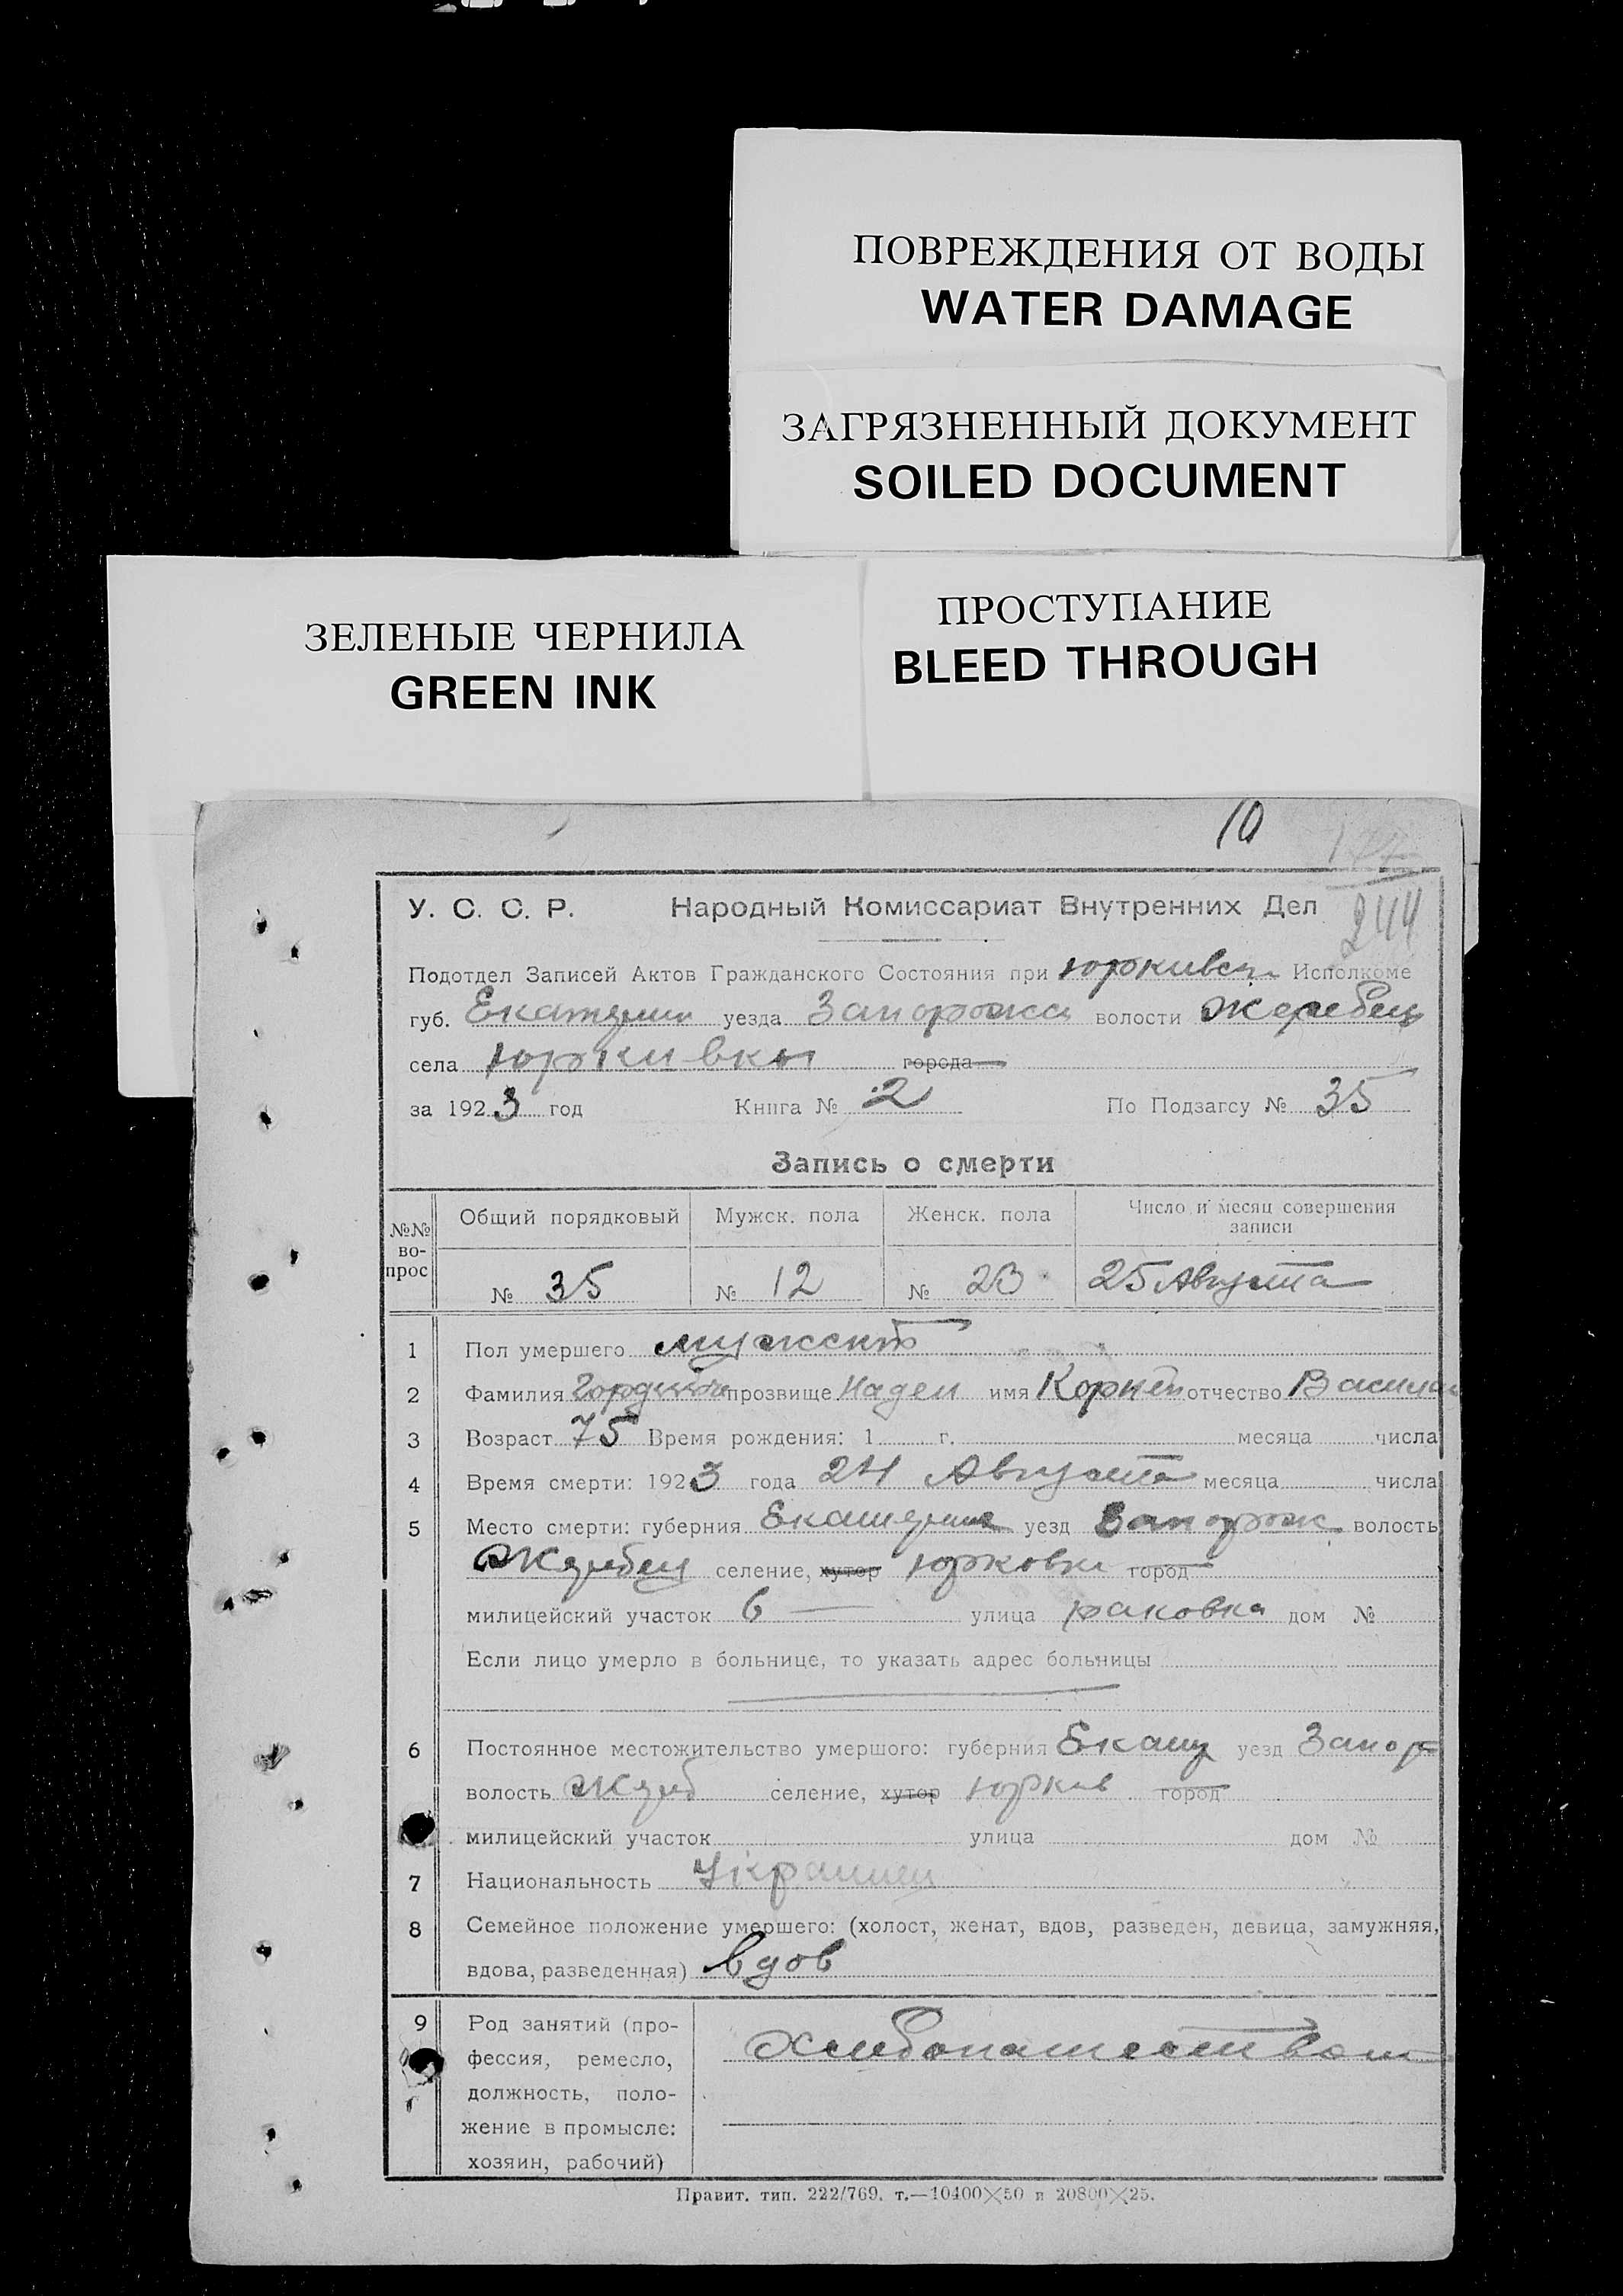 ПОВРЕЖДЕНИЯ ОТ ВОДЫ
WATER DAMAGE
ЗАГРЯЗНЕННЫЙ ДОКУМЕНТ
SOILED DOCUMENT
ЗЕЛЕНЫЕ ЧЕРНИЛА
GREEN INK
ПРОСТУПАНИЕ
BLEED THROUGH
10
244
У. С. С. Р. Народный Комиссариат Внутренних Дел
Подотдел Записей Актов Гражданского Состояния при Юркивск Исполкоме
губ. Екатерин уезда Запорожск волости Жеребец
села Юркивки города
за 1923 год Книга № 2 По Подзагсу № 35
Запись о смерти
№№ во-прос Общий порядковый Мужск. пола Женск. пола Число и месяц совершения записи
№ 35 № 12 № 23 25 Августа
1 Пол умершего мужской
2 Фамилия прозвище Надел имя Корней отчество Василев
3 Возраст 75 Время рождения: 1 г. месяца числа
4 Время смерти: 1923 года 24 Августа месяца числа
5 Место смерти: губерния Екатерин уезд Запорож волость
Жеребец селение, хутор Юрковки город
милицейский участок 6 улица раковка дом №
Если лицо умерло в больнице, то указать адрес больницы
6 Постоянное местожительство умершого: губерния Екатер уезд Запор
волость Жереб селение, хутор Юркив город
милицейский участок улица дом №
7 Национальность Украинец
8 Семейное положение умершего: (холост, женат, вдов, разведен, девица, замужняя,
вдова, разведенная) вдов
9 Род занятий (про-
фессия, ремесло, Хлебопашеством
должность, поло-
жение в промысле:
хозяин, рабочий)
Правит. тип. 222/769. т.—10400×50 и 20800×25.